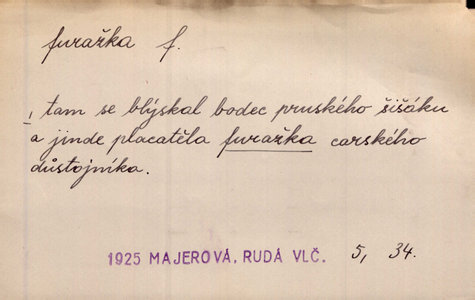 furažka f.
, tam se blýskal bodec pruského šišáku
a jinde placatěla furažka carského
důstojníka.
1925 MAJEROVÁ, RUDÁ VLČ. 5, 34.